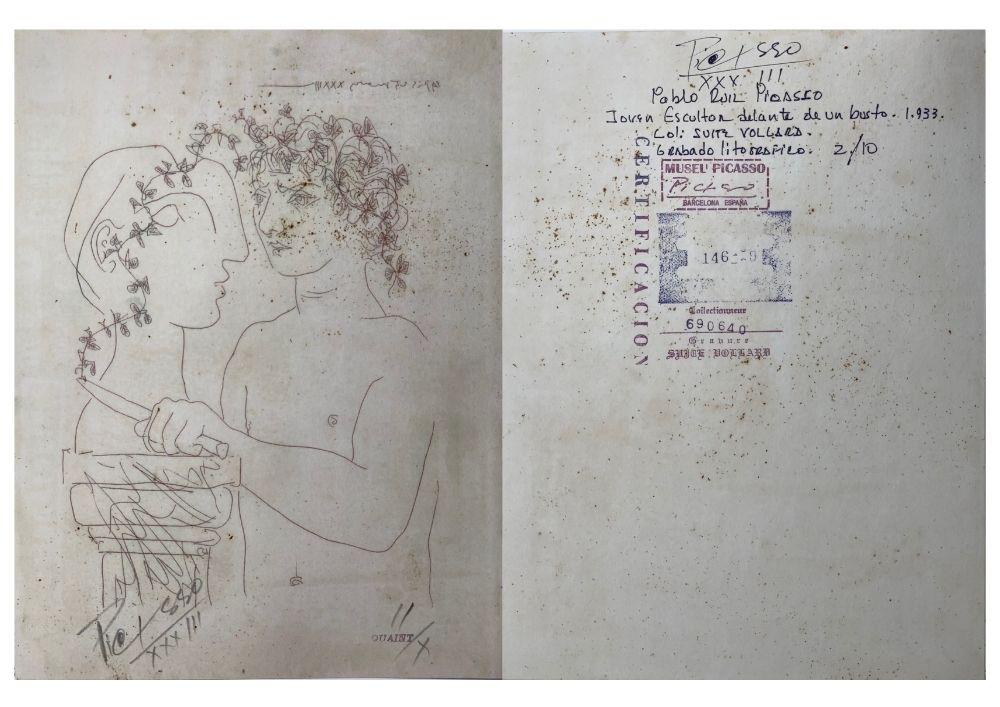 Picasso
XXX III
II/X
QUAINT
Picasso
XXX III
Pablo RUIZ PICASSO
Joven Escultor delante de un busto. 1.933.
Col: SUITE VOLLARD.
Grabado litografico. 2/10
CERTIFICACION
MUSEU PiCASSO
Picasso
BARCELONA ESPAÑA
Collectionneur
690640
Gravure
SUITE VOLLARD